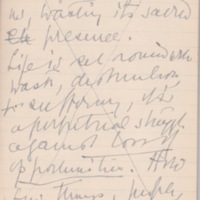 us, wasting its sacred
presence.
Life is set round with
waste, destruction,
suffering, it's
a perpetual struggle
against loss of
opportunities. How
few things, people,